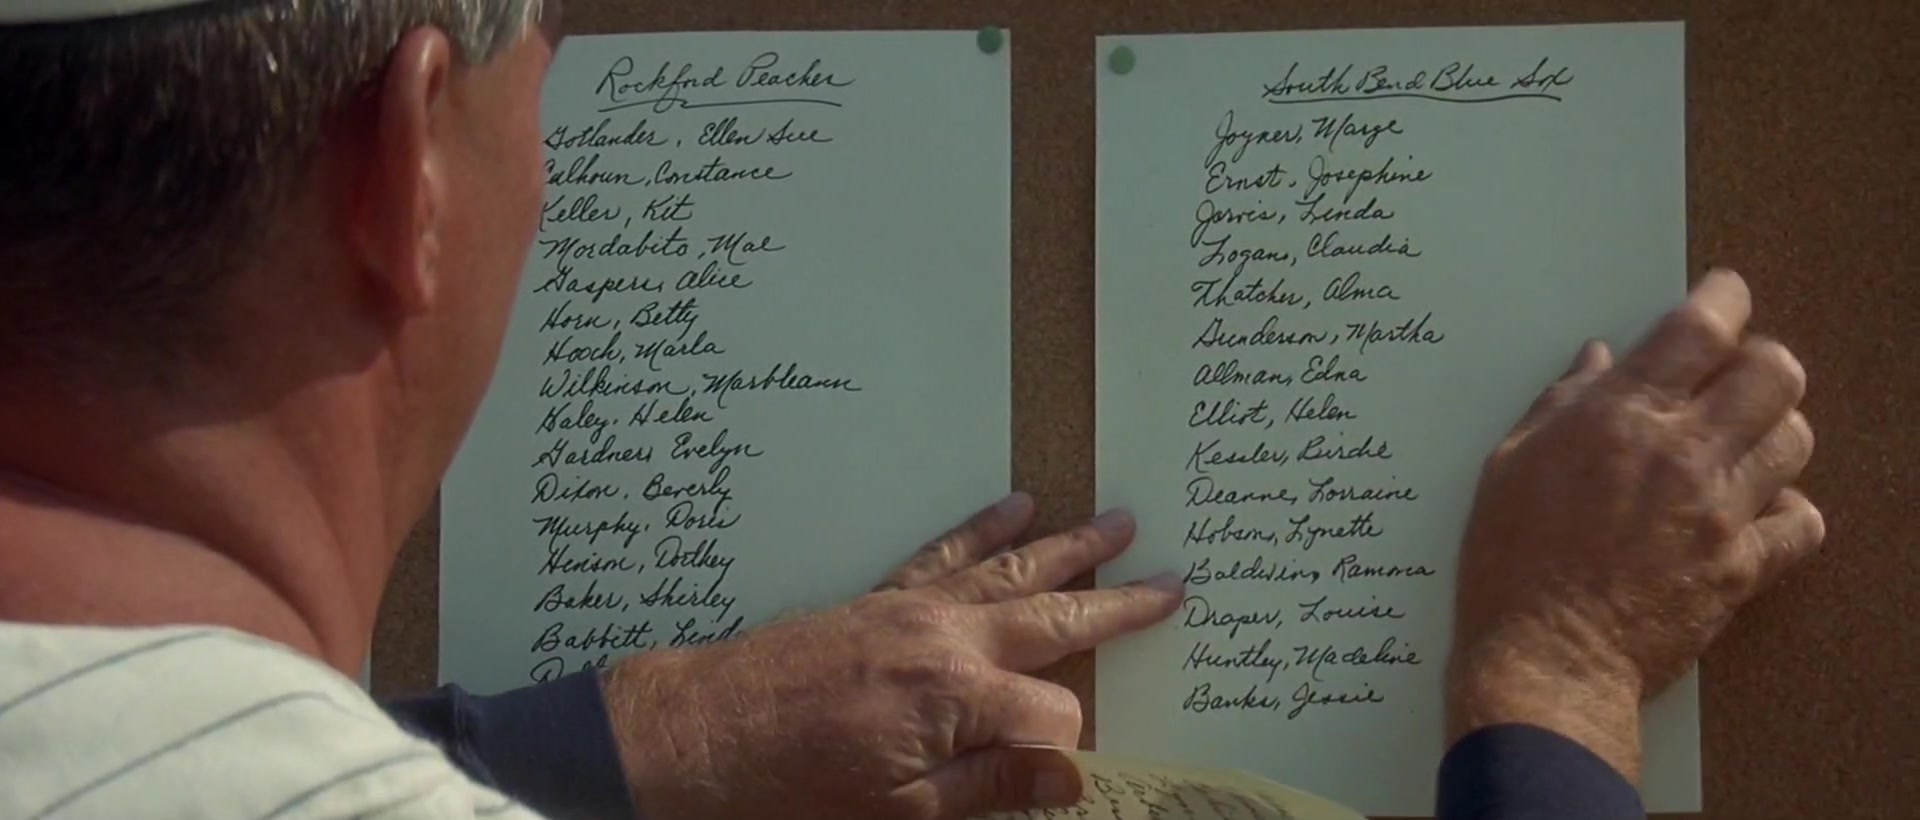 Rockford Peaches
Gotlander, Ellen Sue
Calhoun, Constance
Keller, Kit
Mordabito, Mae
Gaspers, Alice
Horn, Betty
Hooch, Marla
Wilkinson, Marbleann
Haley, Helen
Gardner, Evelyn
Dixon, Beverly
Murphy, Doris
Henson, Dorthey
Baker, Shirley
Babbitt,
South Bend Blue Sox
Joyner, Marge
Ernst, Josephine
Jarvis, Linda
Logan, Claudia
Thatcher, Alma
Gunderson, Martha
Allman, Edna
Elliot, Helen
Kessler, Birdie
Deanne, Lorraine
Hobson, Lynette
Baldwin, Ramona
Draper, Louise
Huntley, Madeline
Banks, Jessie